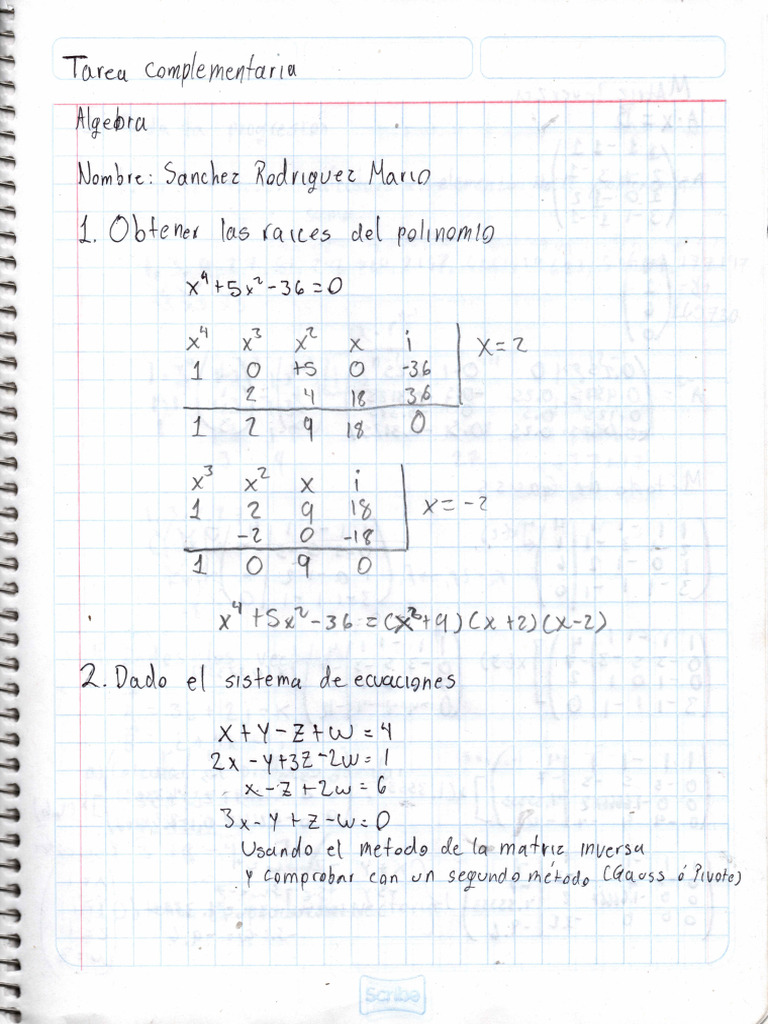 Tarea complementaria
Algebra
Nombre: Sanchez Rodriguez Mario
1. Obtener las raices del polinomio
x⁴+5x²-36=0
x⁴ x³ x² x i
1 0 +5 0 -36 x=2
2 4 18 36
1 2 9 18 0
x³ x² x i
1 2 9 18 x=-2
-2 0 -18
1 0 9 0
x⁴+5x²-36=(x²+9)(x+2)(x-2)
2. Dado el sistema de ecuaciones
x+y-z+w=4
2x-y+3z-2w=1
x-z+2w=6
3x-y+z-w=0
Usando el metodo de la matriz inversa
y comprobar con un segundo método (Gauss ó Pivote)
Scribe